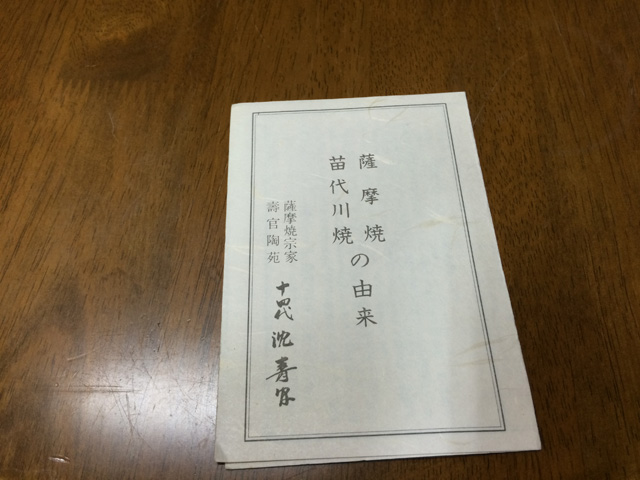 薩摩焼
苗代川焼の由来
薩摩焼宗家
壽官陶苑
十四代 沈壽官